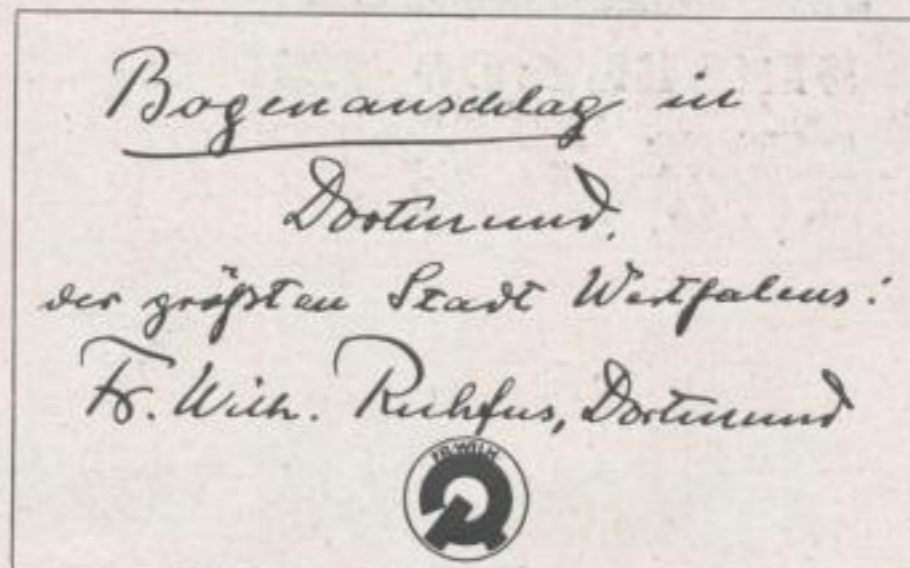 Bogenanschlag in
Dortmund,
der größten Stadt Westfalens:
Fr. Wilh. Ruhfus, Dortmund
FR. WILH